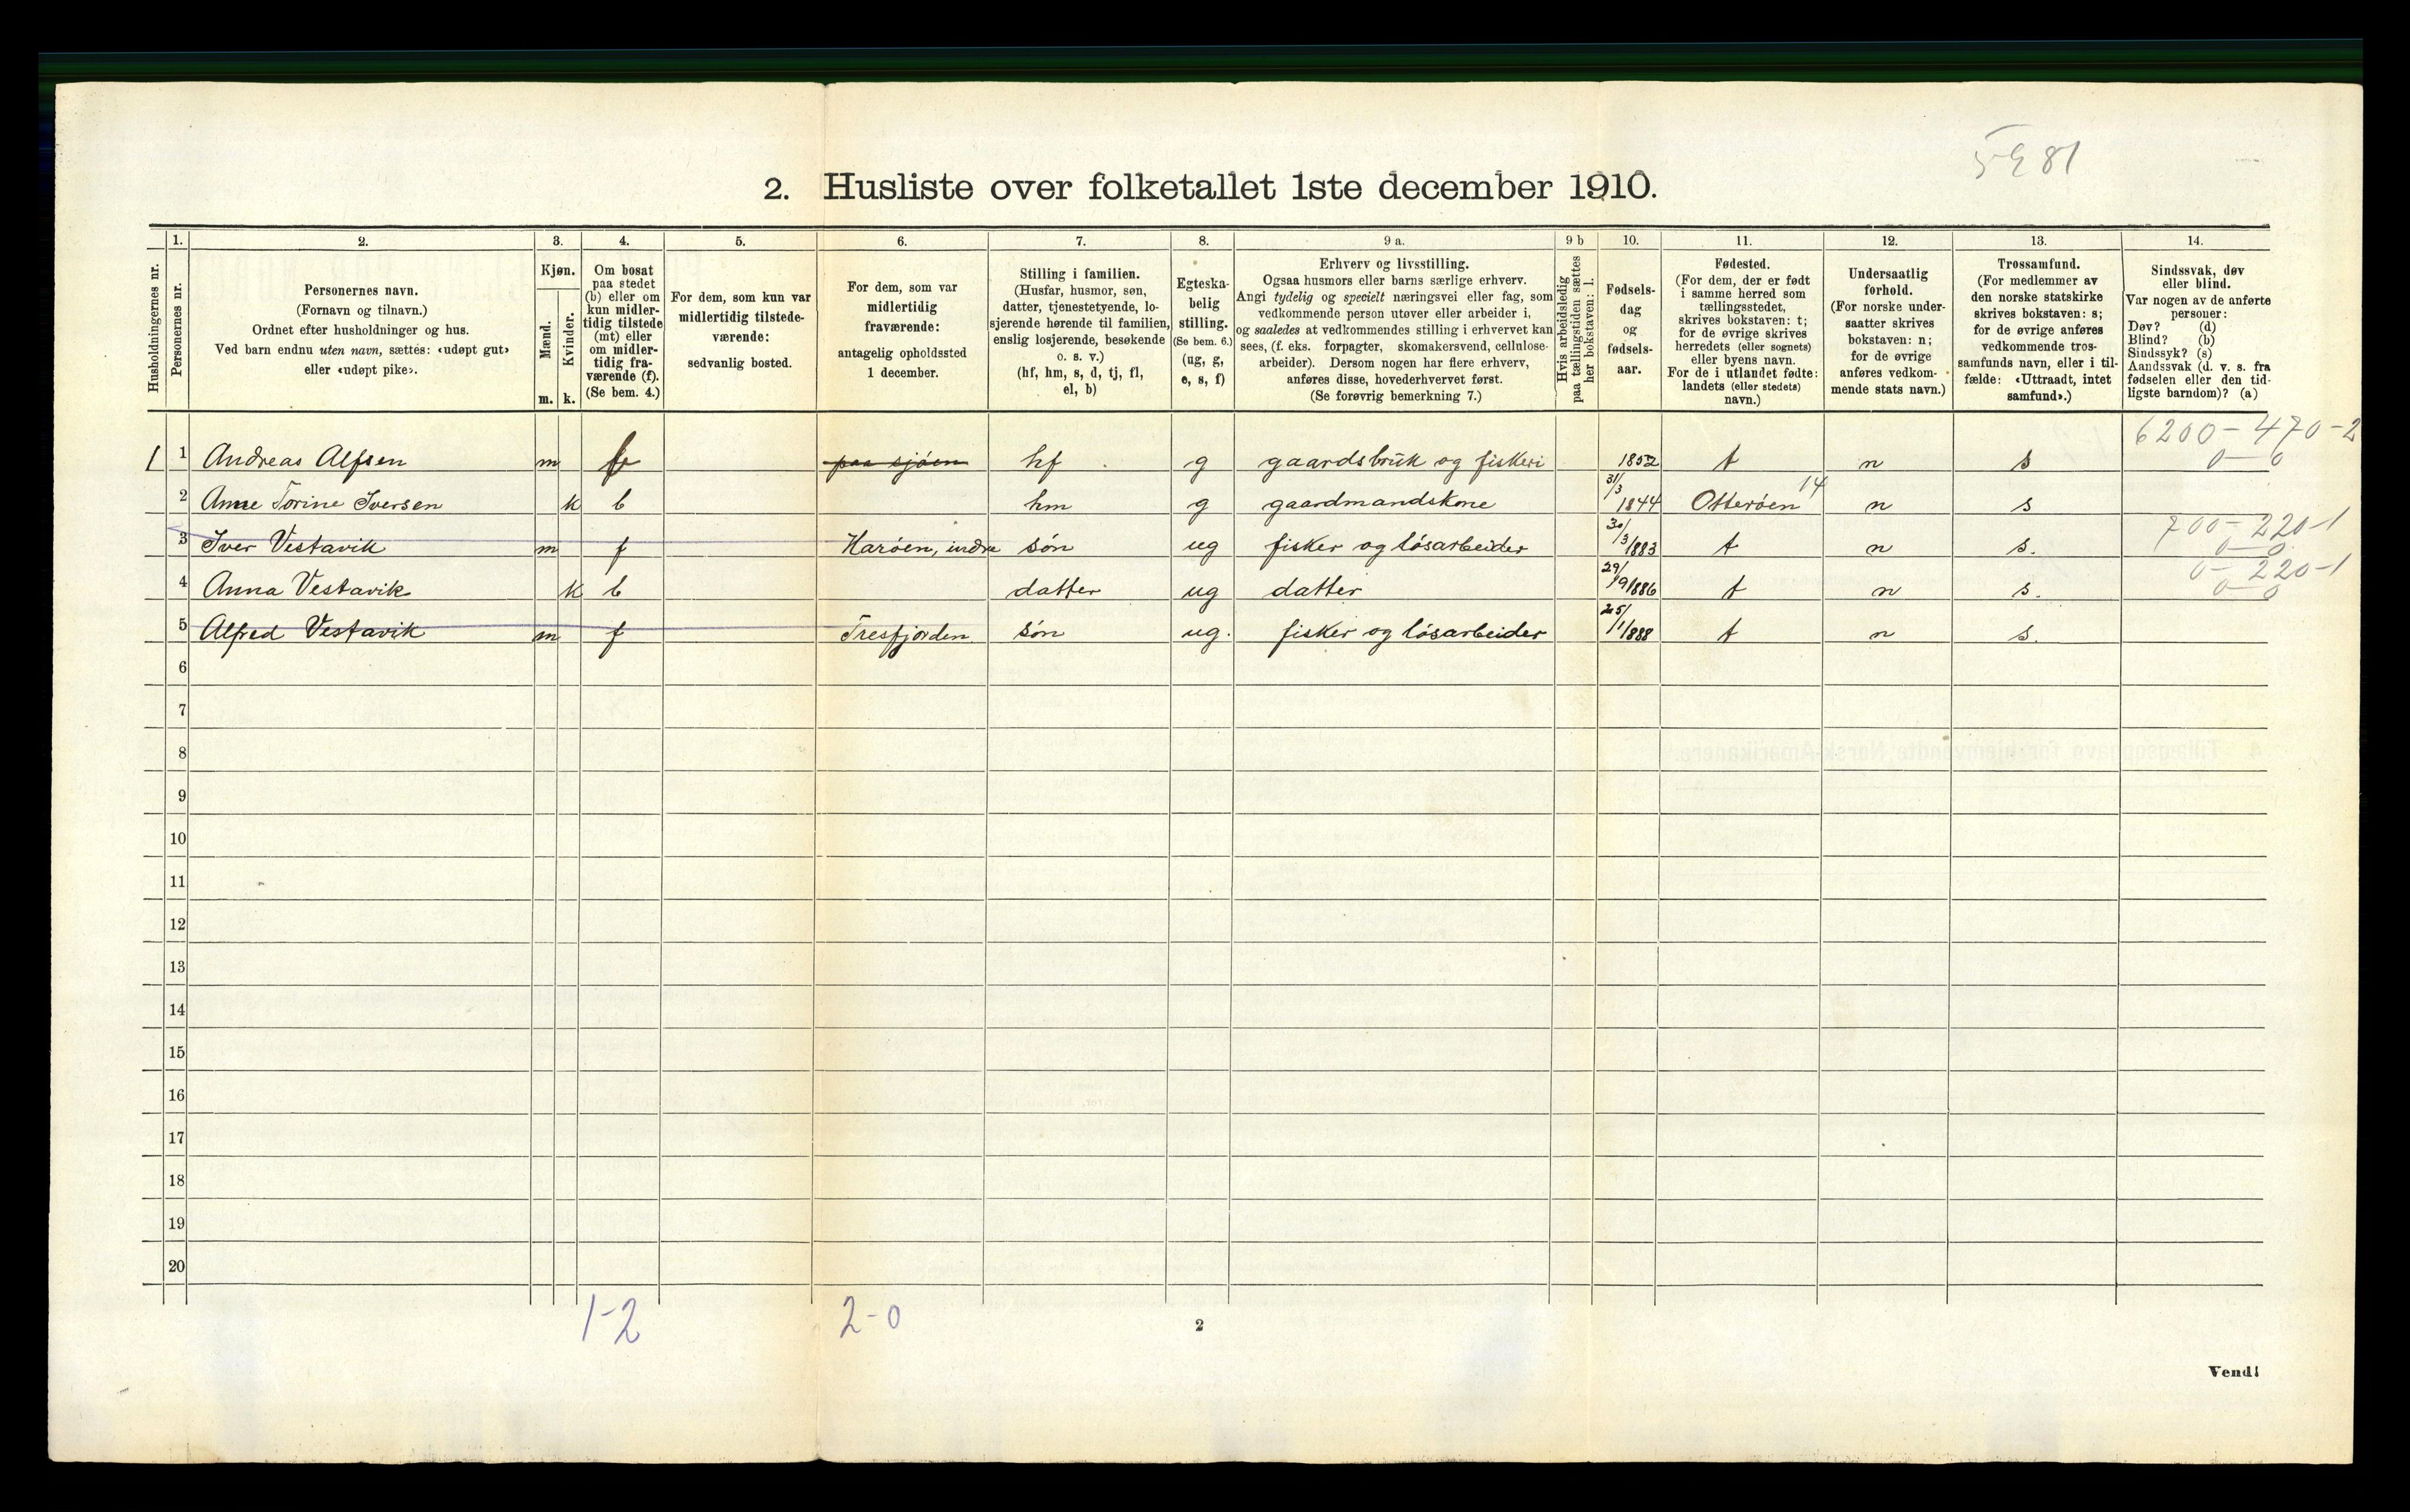 5981
2. Husliste over folketallet 1ste december 1910.
Husholdningernes nr.
1.
Personernes nr.
2.
Personernes navn.
(Fornavn og tilnavn.)
Ordnet efter husholdninger og hus.
Ved barn endnu uten navn, sættes: «udøpt gut»
eller «udøpt pike».
3.
Kjøn.
Mænd.
Kvinder.
m. k.
4.
Om bosat
paa stedet
(b) eller om
kun midler-
tidig tilstede
(mt) eller
om midler-
tidig fra-
værende (f).
(Se bem. 4.)
5.
For dem, som kun var
midlertidig tilstede-
værende:
sedvanlig bosted.
6.
For dem, som var
midlertidig
fraværende:
antagelig opholdssted
1 december.
7.
Stilling i familien.
(Husfar, husmor, søn,
datter, tjenestetyende, lo-
sjerende hørende til familien,
enslig losjerende, besøkende
o. s. v.)
(hf, hm, s, d, tj, fl,
el, b)
8.
Egteska-
belig
stilling.
(Se bem. 6.)
(ug, g,
e, s, f)
9 a.
Erhverv og livsstilling.
Ogsaa husmors eller barns særlige erhverv.
Angi tydelig og specielt næringsvei eller fag, som
vedkommende person utøver eller arbeider i,
og saaledes at vedkommendes stilling i erhvervet kan
sees, (f. eks. forpagter, skomakersvend, cellulose-
arbeider). Dersom nogen har flere erhverv,
anføres disse, hovederhvervet først.
(Se forøvrig bemerkning 7.)
9 b
Hvis arbeidsledig
paa tællingstiden sættes
her bokstaven: l.
10.
Fødsels-
dag
og
fødsels-
aar.
11.
Fødested.
(For dem, der er født
i samme herred som
tællingsstedet,
skrives bokstaven: t;
for de øvrige skrives
herredets (eller sognets)
eller byens navn.
For de i utlandet fødte:
landets (eller stedets)
navn.)
12.
Undersaatlig
forhold.
(For norske under-
saatter skrives
bokstaven: n;
for de øvrige
anføres vedkom-
mende stats navn.)
13.
Trossamfund.
(For medlemmer av
den norske statskirke
skrives bokstaven: s;
for de øvrige anføres
vedkommende tros-
samfunds navn, eller i til-
fælde: «Uttraadt, intet
samfund».)
14.
Sindssvak, døv
eller blind.
Var nogen av de anførte
personer:
Døv? (d)
Blind? (b)
Sindssyk? (s)
Aandssvak (d. v. s. fra
fødselen eller den tid-
ligste barndom)? (a)
6200-470-2
1 1 Andreas Alfsen m paa sjøen hf g gaardsbruk og fiskeri 1852 t n s 0-0
2 Anne Torine Iversen k b hm g gaardmandskone 31/3 1844 Otterøen 14 n s
700-220-1
3 Iver Vestavik m f Harøen, indre søn ug fisker og løsarbeider 30/3 1883 t n s. 0-0
0-220-1
4 Anna Vestavik k b datter ug datter 29/9 1886 t n s. 0-0
5 Alfred Vestavik m f Tresfjorden søn ug. fisker og løsarbeider 25/1 1888 t n s.
6
7
8
9
10
11
12
13
14
15
16
17
18
19
20
1-2 2-0
2
Vend!